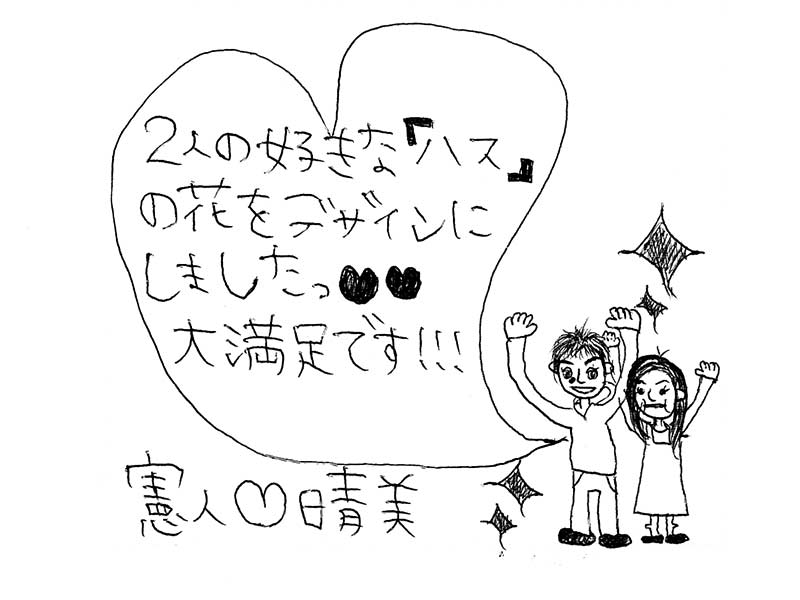 2人の好きな『ハス』
の花をデザインに
しましたっ♥♥
大満足です!!!
憲人♡晴美